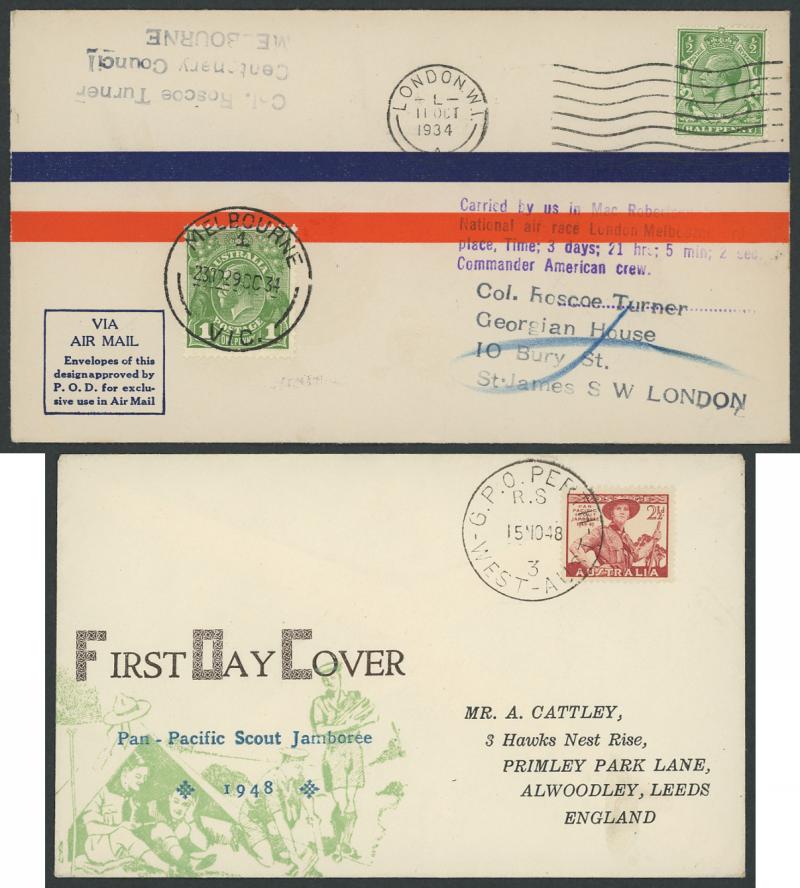 Col. Roscoe Turner
Centenary Council
MELBOURNE
LONDON.W.1.
- L -
11 OCT
1934
A
½ ½
HALFPENNY
Carried by us in Mac.
National air race London
place, Time; 3 days; 21 hrs; 5 min; 2 sec.
Commander American crew.
MELBOURNE
1
OC 34
VIC.
AUSTRALIA
1 1
POSTAGE
Col. Roscoe Turner
Georgian House
10 Bury St.
St.James S W LONDON
VIA
AIR MAIL
Envelopes of this
design approved by
P. O. D. for exclu-
sive use in Air Mail
G.P.O. PERTH
R.S
15 NO 48
3
WEST-AUST
PAN
PACIFIC
SCOUT
JAMBOREE
2½
AUSTRALIA
FIRST DAY COVER
Pan - Pacific Scout Jamboree
1948
MR. A. CATTLEY,
3 Hawks Nest Rise,
PRIMLEY PARK LANE,
ALWOODLEY, LEEDS
ENGLAND